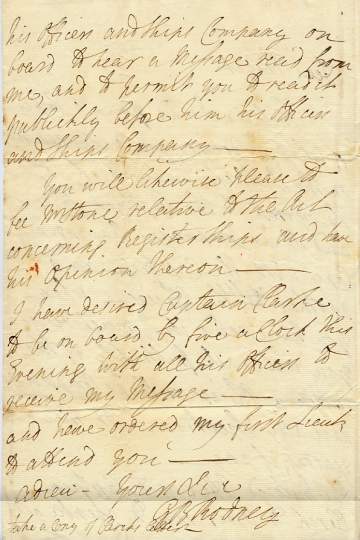 his Officers and Ships Company on
board to hear a Message rec'd from
me, and to permit you to read it
publickly before him his Officers
and Ships Company —
You will likewise please to
see relative to the Act
concerning Register Ships and have
his Opinion thereon —
I have desired Captain Clarke
to be on board by five a Clock this
Evening with all his Officers to
receive my Message —
and have ordered my first Lieut
to attend you —
adieu - Yours Sir
GB Rodney
take a Copy of